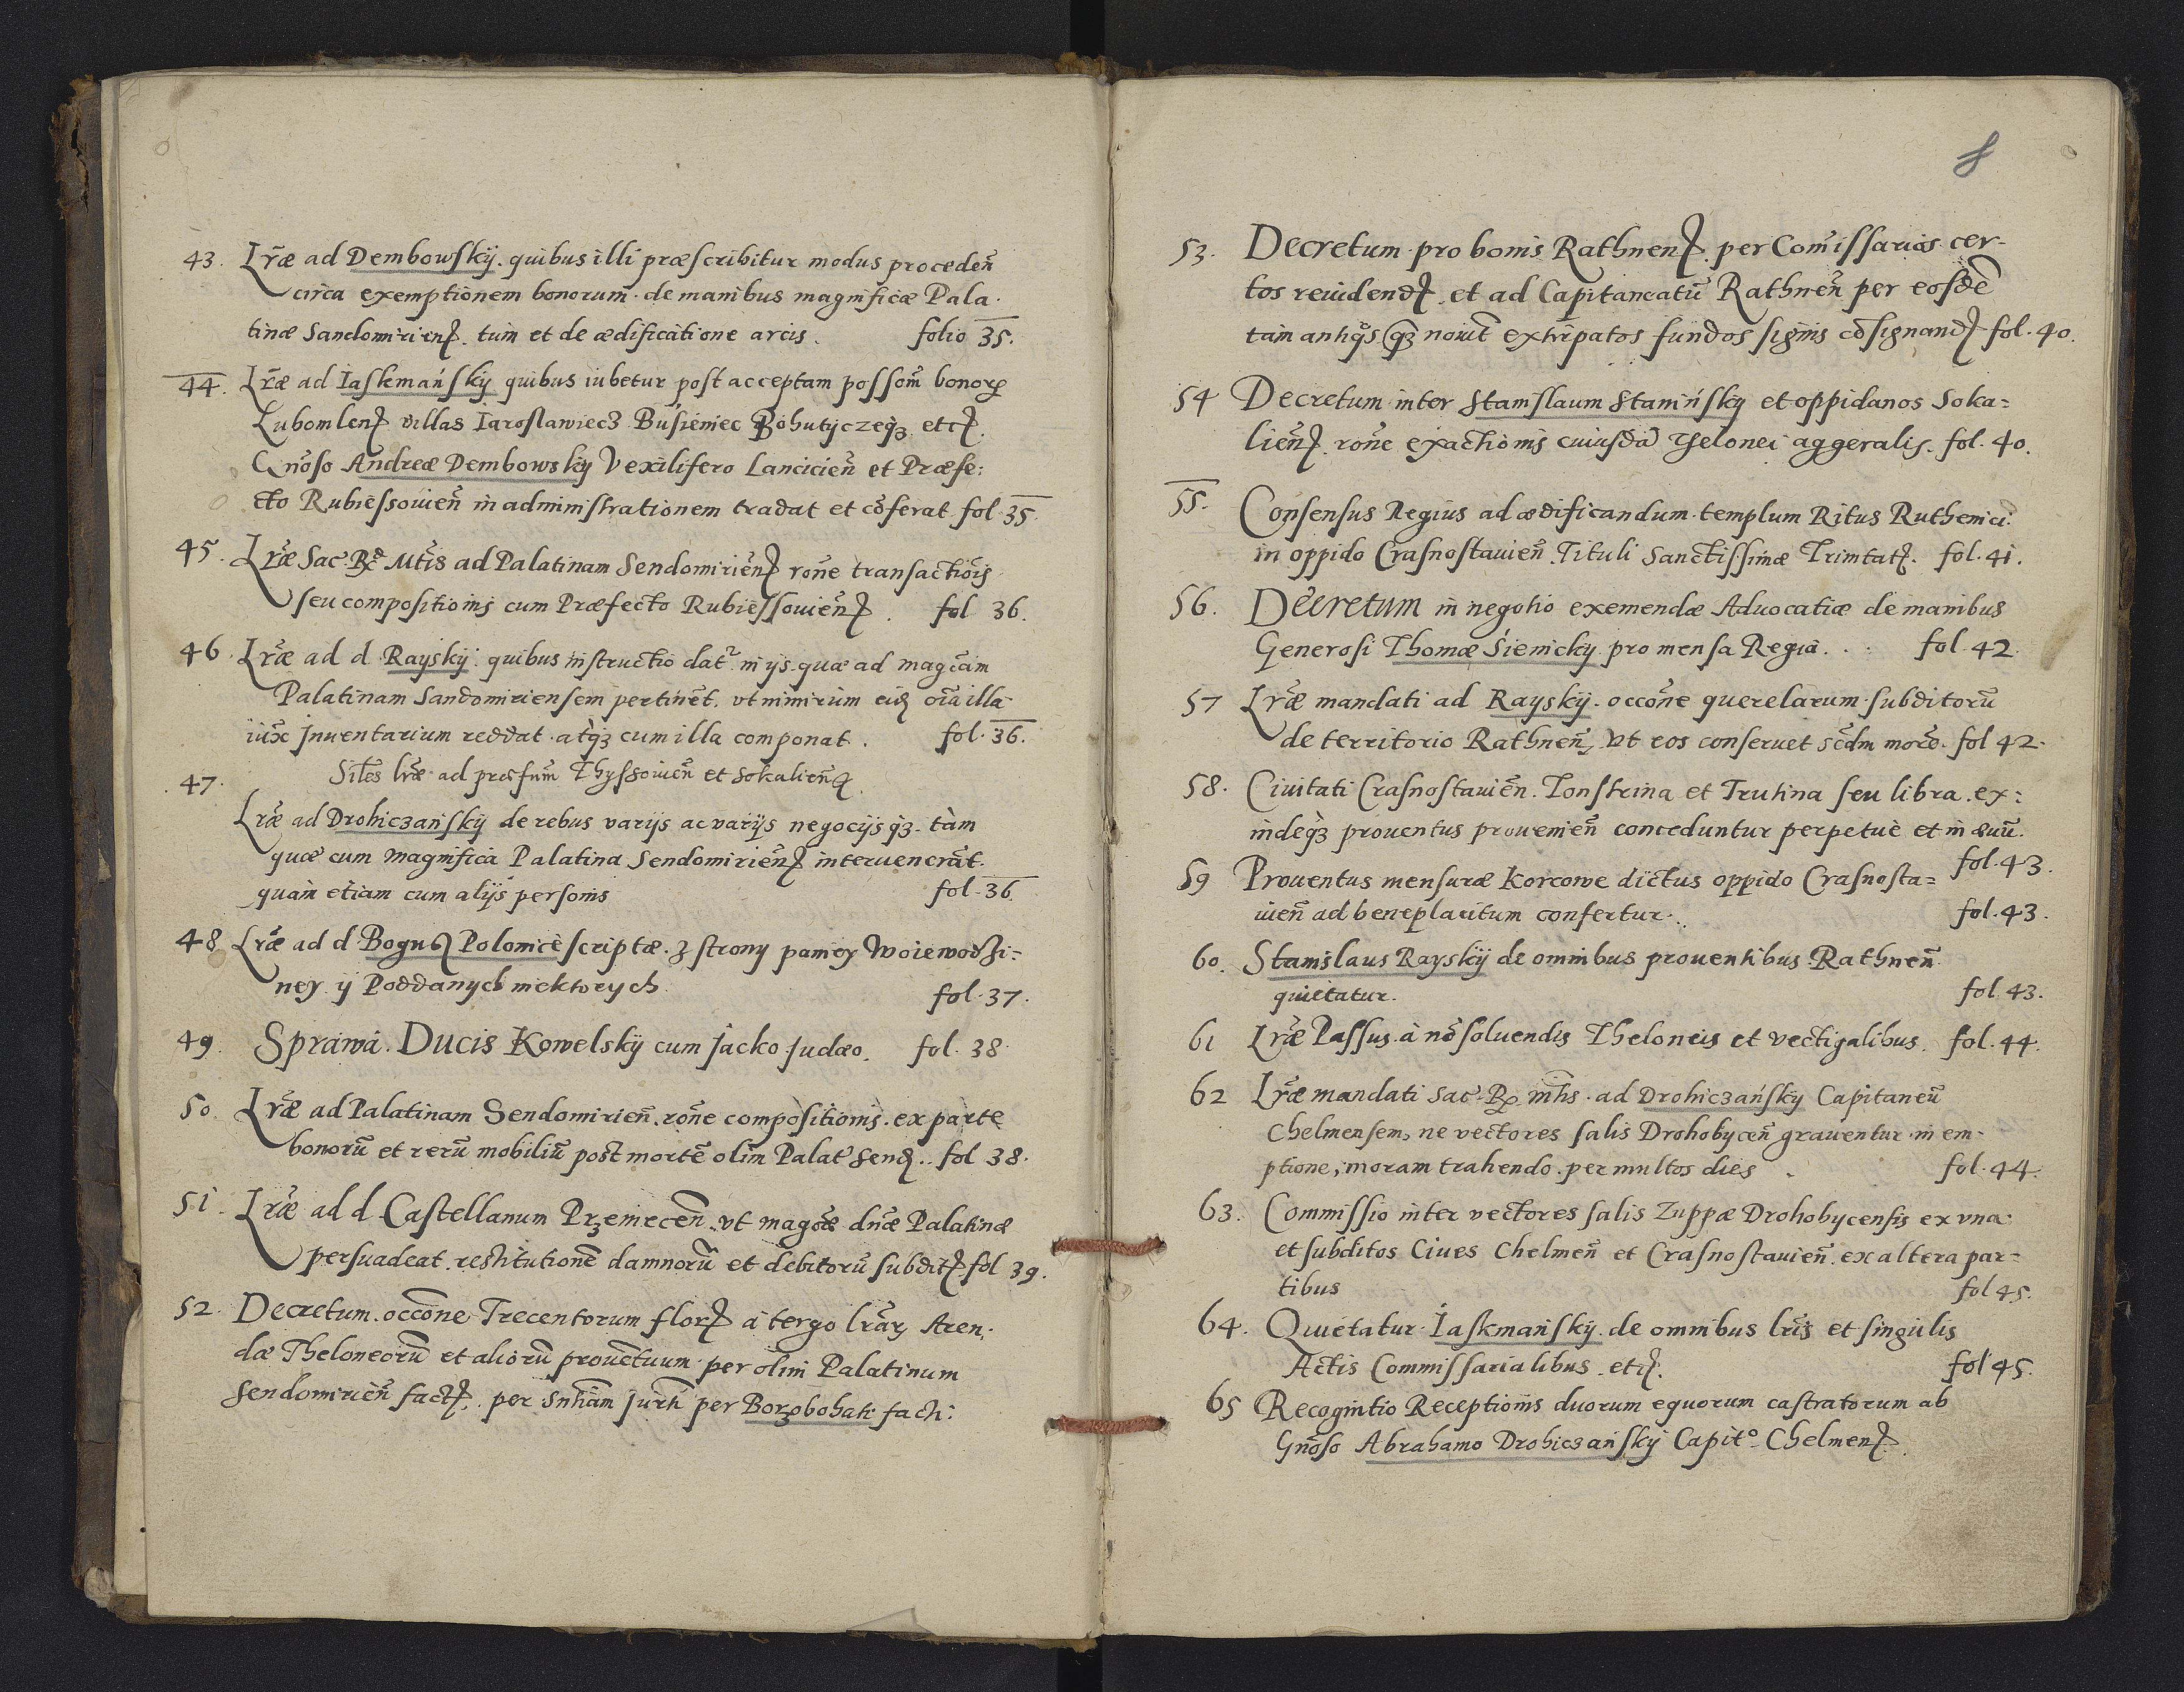 43. Lr̃æ ad Dembowskÿ. quibus illi præscribitur modus proceden̄
circa exemptionem bonorum. de manibus magnificæ Pala.
tinæ Sandomirieñ. tum et de ædificatione arcis. folio 35.
44. Lr̃æ ad Iaskmańskÿ quibus iubetur post acceptam possom̃ bonorꝝ
Lubomleñ villas Iarosławiecz Busieniec Bohutÿcze q̃ꝫ etc.
Gñoso Andreæ Dembowskÿ Vexilifero Lancicieñ et Præfe:
cto Rubiessouieñ in administrationem tradat et cõferat fol 35
45. Lr̃æ Sac. Rę Mt̃is ad Palatinam Sendomirieñ rõne transactiõis
seu compositionis cum Præfecto Rubiessouieñ. fol 36.
46. Lr̃æ ad d Rayskÿ quibus instructio dat̃ in ijs quæ ad magcãm
Palatinam Sandomiriensem pertinẽt. vt nimirum eid oĩa illa
iux̃ Jnuentarium reddat. atq̃ꝫ cum illa componat. fol. 36.
47. Siles̃ lr̃æ ad præfm̃ Thyssouieñ et Sokalieñ.
Lr̃æ ad Drohiczańskÿ de rebus varijs ac varijs negocijs q̃ꝫ. tàm
quæ cum magnifica Palatina Sendomirieñ interuenerãt.
quàm etiam cum alijs personis fol. 36.
48 Lr̃æ ad d Bogus Polonicè scriptæ. z strony paniey Woiewodzi=
ney. ÿ Poddanych niektorych fol. 37.
49. Spráwá. Ducis Kowelskÿ cum jacko Judæo. fol. 38.
50. Lr̃æ ad Palatinam Sendomirieñ. rõne compositionis. ex parte
bonorũ et rerũ mobiliũ post mortẽ olim Palat Send.. fol 38.
51. Lr̃æ ad d Castellanum Przemeceñ. vt magcæ̃ dñæ Palatinæ
persuadeat. restitutionẽ damnorũ et debitorũ subdit. fol 39.
52. Decretum. occõne Trecentorum flor à tergo lr̃arꝝ Aren.
dæ Theloneorũ et aliorũ prouẽtuum per olim Palatinum
Sendomirieñ fact. per Sntiãm Jurti per Borzobohati facti:
8
53. Decretum. pro bonis Rathneñ. per Com̃issarios cer-
tos reuidend. et ad Capitaneatũ Rathneñ per eosdẽ
tàm antiq̃s q̃ꝫ nouit̃ extirpatos fundos signis cõsignand fol. 40.
54 Decretum inter Stanislaum Stanińskÿ et oppidanos Soka=
lieñ. rõne exactionis cuiusdã Thelonei aggeralis. fol. 40.
55. Consensus Regius ad ædificandum templum Ritus Ruthenici.
in oppido Crasnostauieñ. Tituli Sanctissimæ Trinitat. fol. 41.
56. Decretum in negotio exemendæ Aduocatiæ de manibus
Generosi Thomæ Sienicky pro mensa Regia... fol. 42.
57 Lr̃æ mandati ad Rayskÿ. occõne querelarum subditorũ
de territorio Rathneñ, vt eos conseruet scdm̃ morẽ. fol 42.
58. Ciuitati Crasnostauieñ. Tonstrina et Trutina seu libra. ex:
indeq̃ꝫ prouentus prouenieñ conceduntur perpetuè et in æuũ.
fol. 43.
59 Prouentus mensuræ Korcowe dictus oppido Crasnosta=
uieñ ad beneplacitum confertur. fol. 43.
60. Stanislaus Rayskÿ de omnibus prouentibus Rathneñ
quietatur. fol. 43.
61 Lr̃æ Passus. à nõ soluendis Theloneis et vectigalibus. fol. 44.
62 Lr̃æ mandati Sac. R. mt̃is. ad Drohiczańsky Capitaneũ
Chelmensem, ne vectores salis Drohobyceñ grauentur in em-
ptione, moram trahendo per multos dies. fol. 44.
63. Commissio inter vectores salis Zuppæ Drohobycensis ex vna
et subditos Ciues Chelmeñ et Crasnostauieñ. ex altera par=
tibus fol 45.
64. Quietatur Iaskmańskÿ. de omnibus lr̃is et singulis
Actis Commissarialibus. etc. fol 45.
65 Recognitio Receptionis duorum equorum castratorum ab
Gñoso Abrahamo Drohiczańskÿ Capit⁰. Chelmeñ.